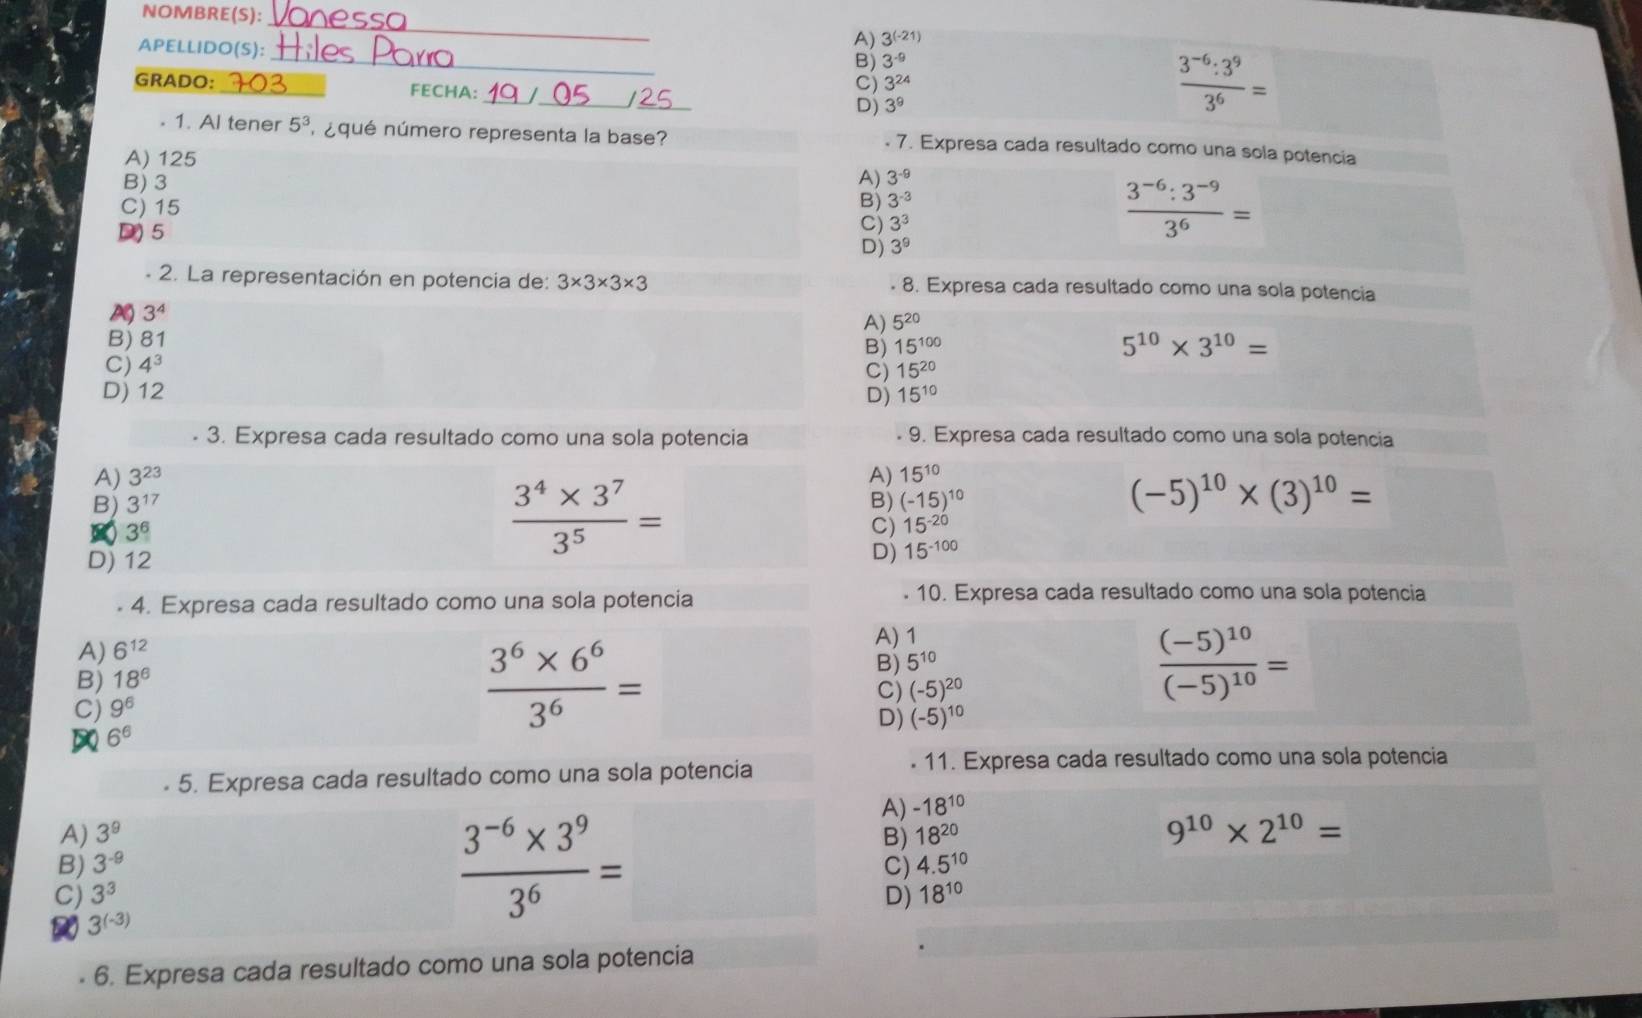 NOMBRE(S): Vanessa
APELLIDO(S): Hiles Parra
GRADO: 703 FECHA: 19 / 05 / 25
. 1. Al tener 5³, ¿qué número representa la base?
A) 125
B) 3
C) 15
D) 5
. 2. La representación en potencia de: 3×3×3×3
A) 3⁴
B) 81
C) 4³
D) 12
. 3. Expresa cada resultado como una sola potencia
A) 3²³
B) 3¹⁷
C) 3⁶
D) 12
(3⁴ × 3⁷)/3⁵ =
. 4. Expresa cada resultado como una sola potencia
A) 6¹²
B) 18⁶
C) 9⁶
D) 6⁶
(3⁶ × 6⁶)/3⁶ =
. 5. Expresa cada resultado como una sola potencia
A) 3⁹
B) 3⁻⁹
C) 3³
D) 3⁽⁻³⁾
(3⁻⁶ × 3⁹)/3⁶ =
. 6. Expresa cada resultado como una sola potencia
A) 3⁽⁻²¹⁾
B) 3⁻⁹
C) 3²⁴
D) 3⁹
(3⁻⁶ : 3⁹)/3⁶ =
. 7. Expresa cada resultado como una sola potencia
A) 3⁻⁹
B) 3⁻³
C) 3³
D) 3⁹
(3⁻⁶ : 3⁻⁹)/3⁶ =
. 8. Expresa cada resultado como una sola potencia
A) 5²⁰
B) 15¹⁰⁰
C) 15²⁰
D) 15¹⁰
5¹⁰ × 3¹⁰ =
. 9. Expresa cada resultado como una sola potencia
A) 15¹⁰
B) (-15)¹⁰
C) 15⁻²⁰
D) 15⁻¹⁰⁰
(−5)¹⁰ × (3)¹⁰ =
. 10. Expresa cada resultado como una sola potencia
A) 1
B) 5¹⁰
C) (-5)²⁰
D) (-5)¹⁰
(−5)¹⁰/(−5)¹⁰ =
. 11. Expresa cada resultado como una sola potencia
A) -18¹⁰
B) 18²⁰
C) 4.5¹⁰
D) 18¹⁰
9¹⁰ × 2¹⁰ =
.